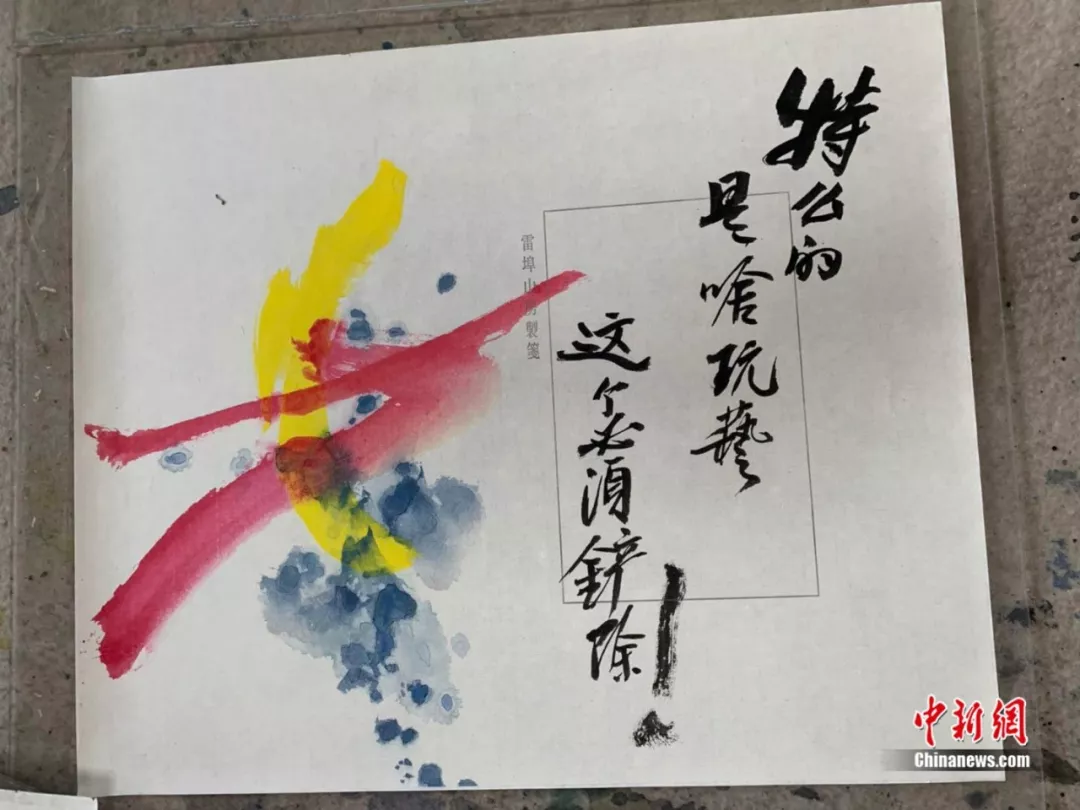 特么的
是啥玩藝
这个必须鏟除！
雷埠山房製箋
中新網
Chinanews.com